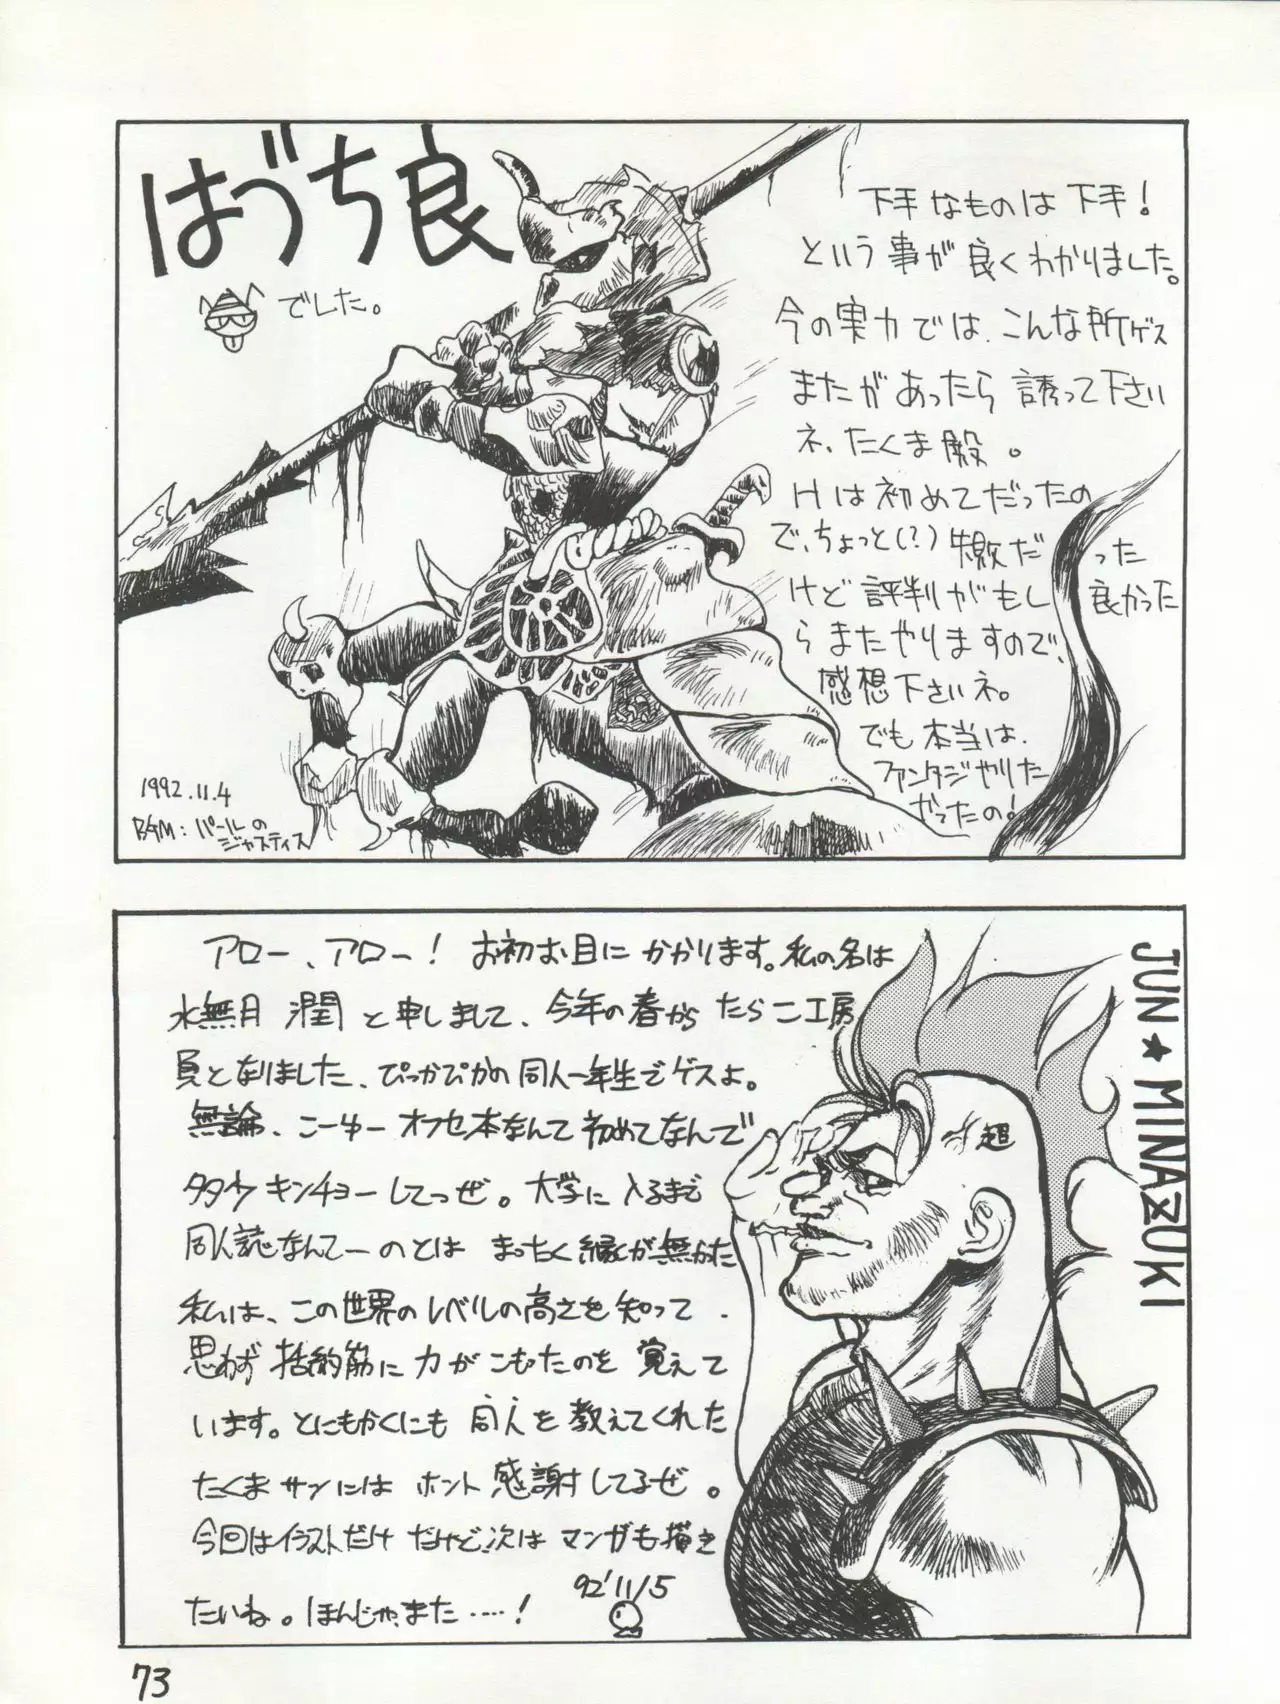 はづち良
でした。
下手なものは下手!
という事が良くわかりました。
今の実力では、こんな所ゲス
またがあったら誘って下さい
ネ、たくま殿。
Hは初めてだったの
で、ちょっと(?)失敗だった
けど評判がもし良かった
らまたやりますので、
感想下さいネ。
でも本当は、
ファンタジやりた
かったの!
1992.11.4
BGM:パールの
ジャスティス
アロー、アロー! お初お目にかかります。私の名は
水無月 潤と申しまして、今年の春からたらこ工房
員となりました、ぴっかぴかの同人一年生でゲスよ。
無論、こーゆーオフセ本なんて初めてなんで
タタ少キンチョーしてっぜ。大学に入るまで
同人誌なんてーのとは まったく縁が無かった
私は、この世界のレベルの高さを知って、
思わず括約筋に力がこもったのを覚えて
います。とにもかくにも同人を教えてくれた
たくまサンにはホント感謝してるぜ。
今回はイラストだけだけど、次はマンガも描き
たいね。ほんじゃ、また……!
92'11/5
超
JUN★MINAZUKI
73